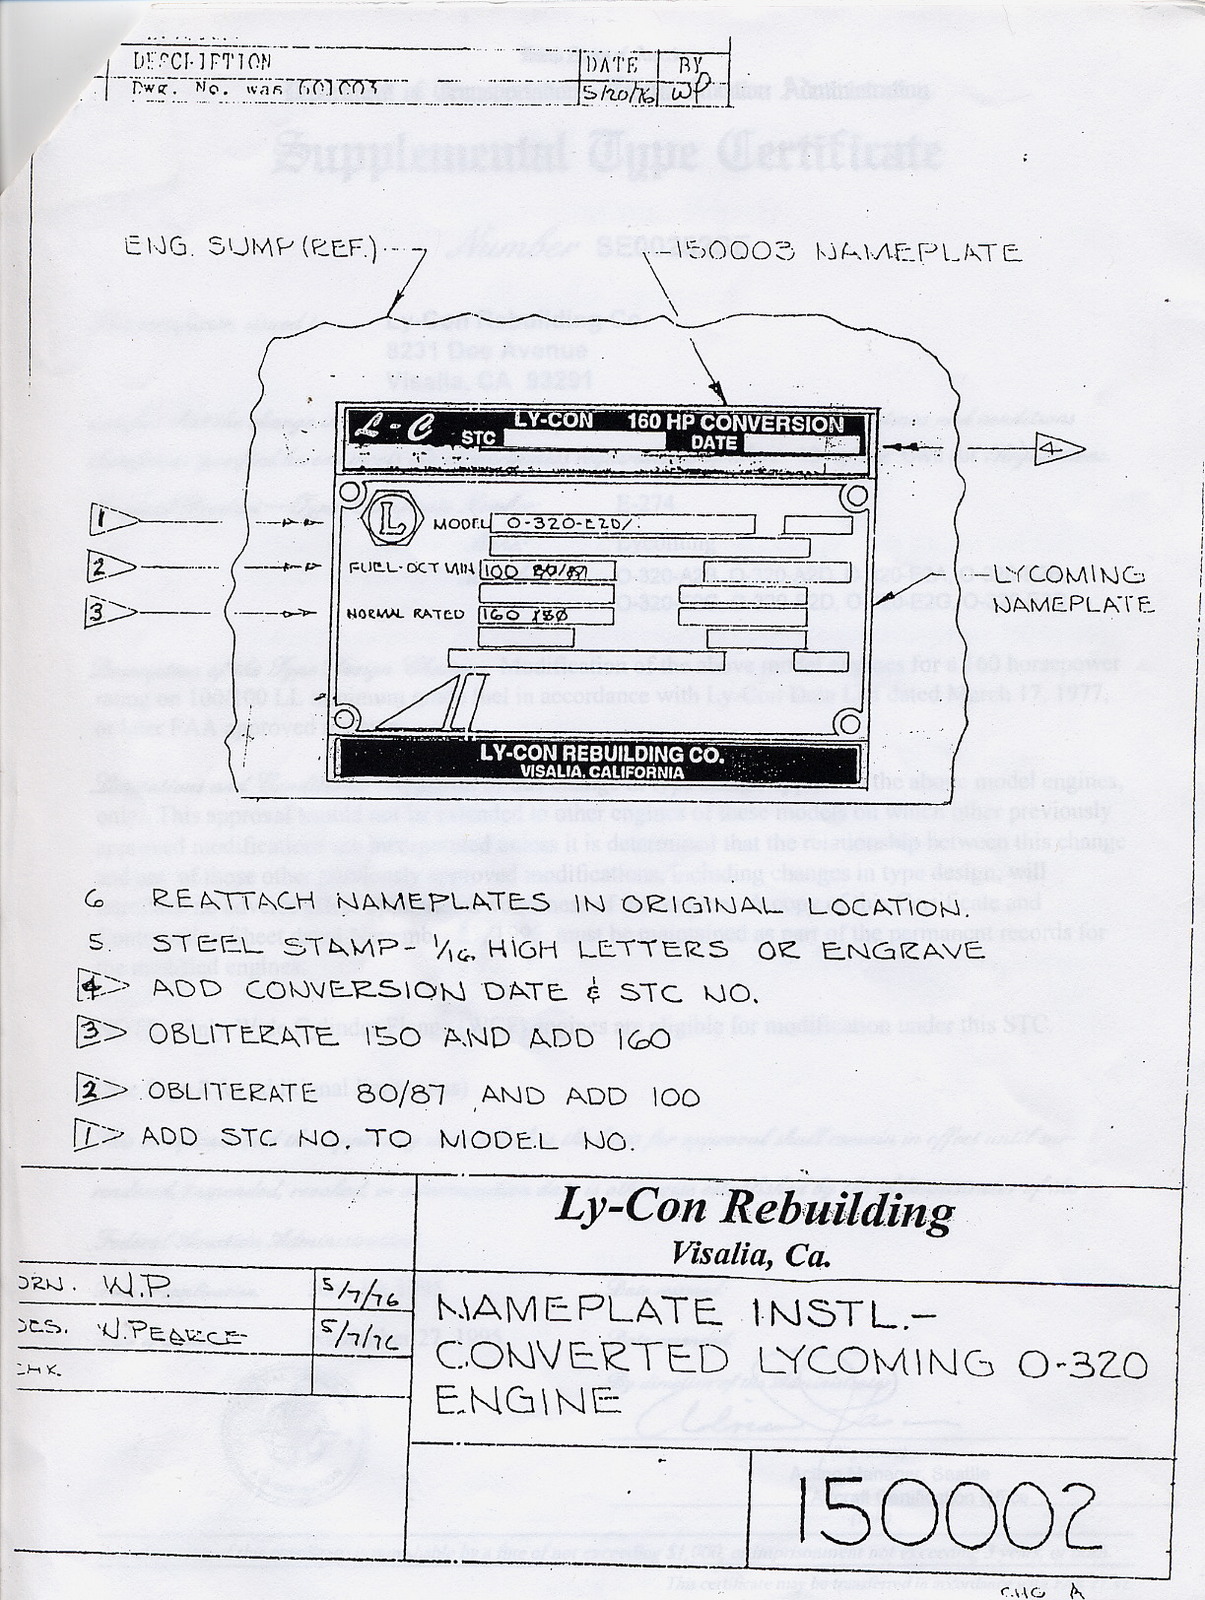 DESCRIPTION DATE BY
Dwg. No. was 601003 5/20/76 WP
Supplemental Type Certificate
ENG. SUMP (REF.) 150003 NAMEPLATE
Number
Ly-Con Rebuilding Co.
8231 Doe Avenue
Visalia, CA 93291
L-C LY-CON 160 HP CONVERSION
STC DATE
4
1
L MODEL O-320-E2D/
2
FUEL-OCT MIN 100 80/87
3
NORMAL RATED 160 150
LYCOMING
NAMEPLATE
LY-CON REBUILDING CO.
VISALIA, CALIFORNIA
6 REATTACH NAMEPLATES IN ORIGINAL LOCATION.
5. STEEL STAMP - 1/16 HIGH LETTERS OR ENGRAVE
4 ADD CONVERSION DATE & STC NO.
3 OBLITERATE 150 AND ADD 160
2 OBLITERATE 80/87 AND ADD 100
1 ADD STC NO. TO MODEL NO.
Ly-Con Rebuilding
Visalia, Ca.
DRN. W.P. 5/7/76
DES. W. PEARCE 5/7/76
CHK.
NAMEPLATE INSTL.-
CONVERTED LYCOMING O-320
ENGINE
150002
CHG A